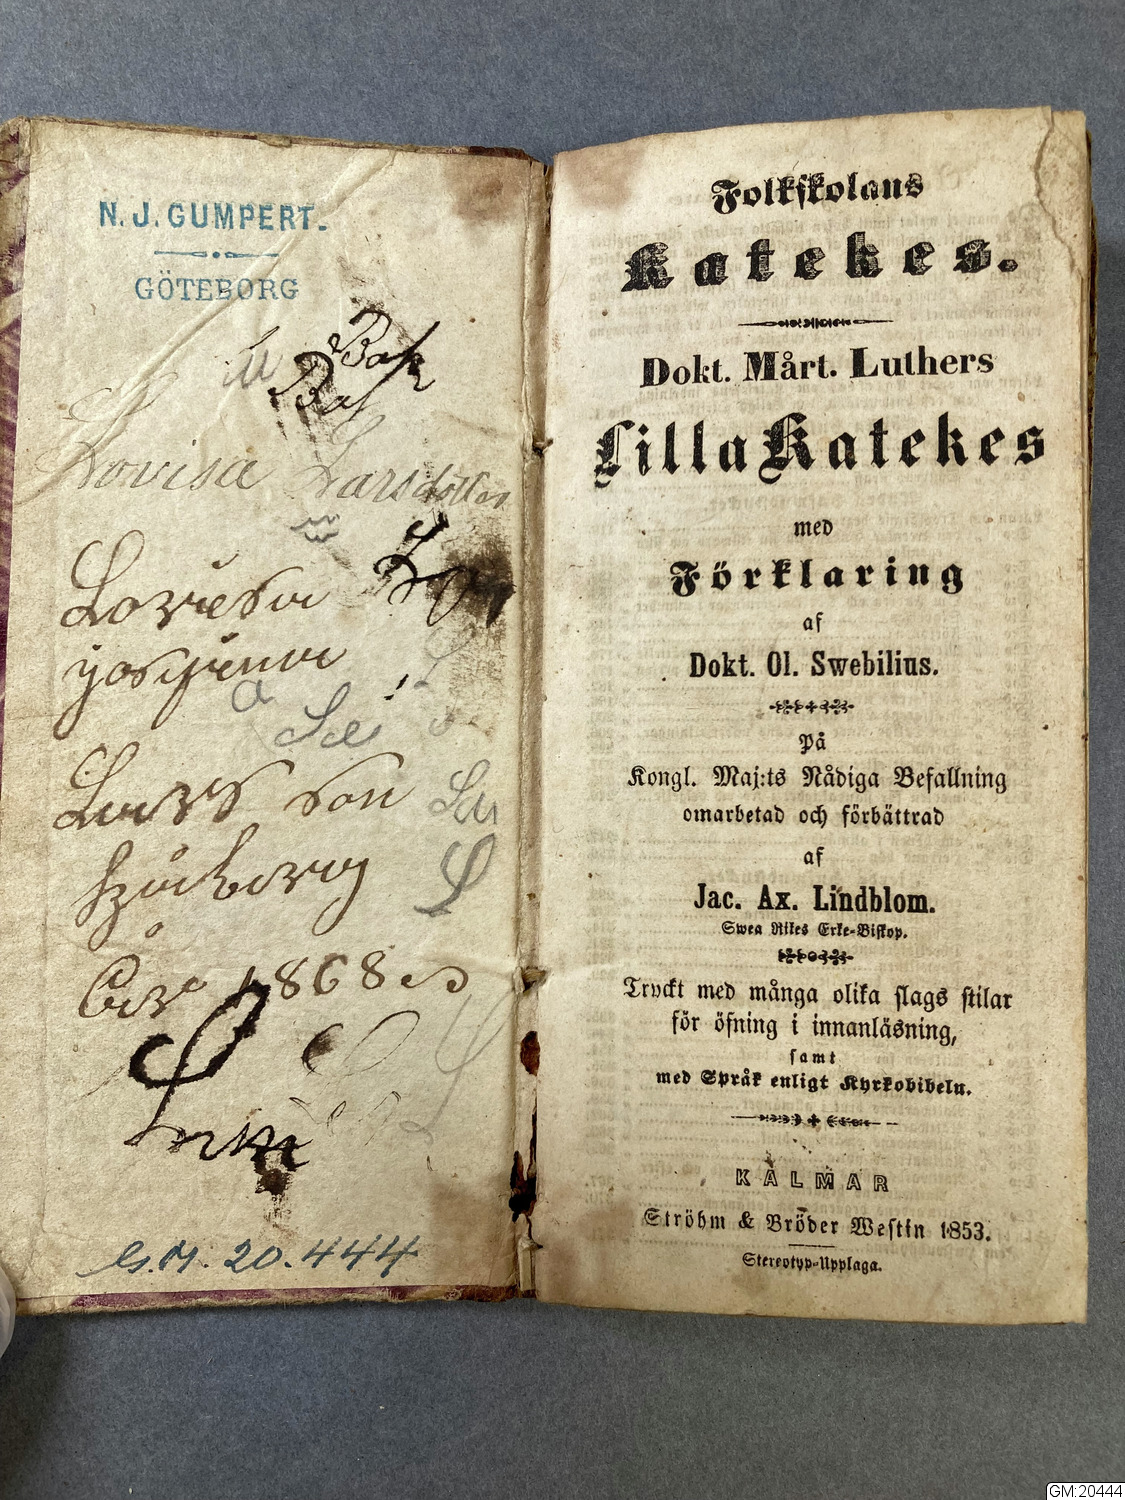 N. J. GUMPERT.
GÖTEBORG
Lovisa Larsdotter
Lovisa
Josefina
Lars son
1868
G.M. 20.444
Folkskolans
Katekes.
Dokt. Mårt. Luthers
Lilla Katekes
med
Förklaring
af
Dokt. Ol. Swebilius.
På
Kongl. Maj:ts Nådiga Befallning
omarbetad och förbättrad
af
Jac. Ax. Lindblom.
Swea Rikes Erke-Biskop.
Tryckt med många olika slags stilar
för öfning i innanläsning,
samt
med Språk enligt Kyrkobibeln.
KALMAR
Ströhm & Bröder Westin 1853.
Stereotyp-Upplaga.
GM:20444